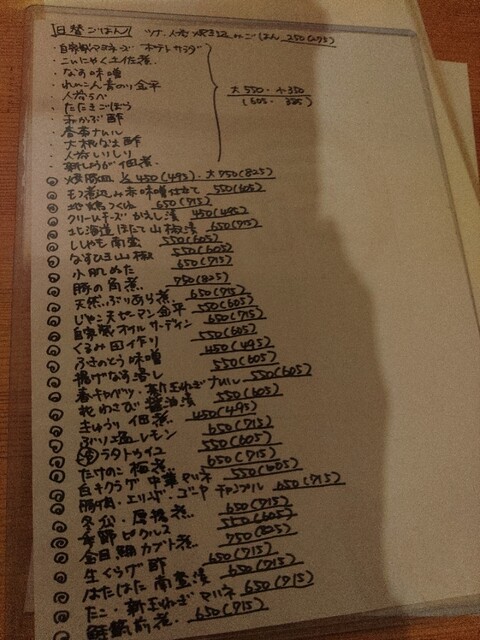 日替ごはん ツナ・人参炊き込みごはん 250(275)
・自家製マヨネーズ ポテトサラダ
・こんにゃく土佐煮
・なす味噌
・れんこん青のり金平
・人参らぺ
・たたきごぼう
・赤かぶ酢
・春菊ナムル
・大根なます酢
・人参いしり
・新しょうが佃煮
大550・小350
(605・385)
◎ 燻豚皿 小450(495)・大750(825)
◎ もつ煮込み赤味噌仕立て 550(605)
◎ 地鶏つくね 650(715)
◎ クリームチーズかえし漬 450(495)
◎ 北海道ほたて山椒漬 650(715)
◎ ししゃも南蛮 550(605)
◎ なすひき山椒 550(605)
◎ 小肌ぬた 650(715)
◎ 豚の角煮 750(825)
◎ 天然ぶりあら煮 650(715)
◎ じゃこ天ピーマン金平 550(605)
◎ 自家製オイルサーディン 650(715)
◎ くるみ田作り 550(605)
◎ ふきのとう味噌 450(495)
◎ 揚げなす浸し 550(605)
◎ 春キャベツ・新玉ねぎナムル 550(605)
◎ 花わさび醤油漬 550(605)
◎ きゅうり佃煮 450(495)
◎ ぶり塩レモン 650(715)
◎ 冷ラタトゥイユ 550(605)
◎ たけのこ梅煮 650(715)
◎ 白キクラゲ中華マリネ 550(605)
◎ 豚肉・エリンギ・ゴーヤチャンプル 650(715)
◎ 冬瓜・厚揚煮 650(715)
◎ 野ピクルス 550(605)
◎ 金目鯛カブト煮 750(825)
◎ 生くらげ酢 650(715)
◎ はたはた南蛮漬 650(715)
◎ たこ・新玉ねぎマリネ 650(715)
◎ 煎煮 650(715)